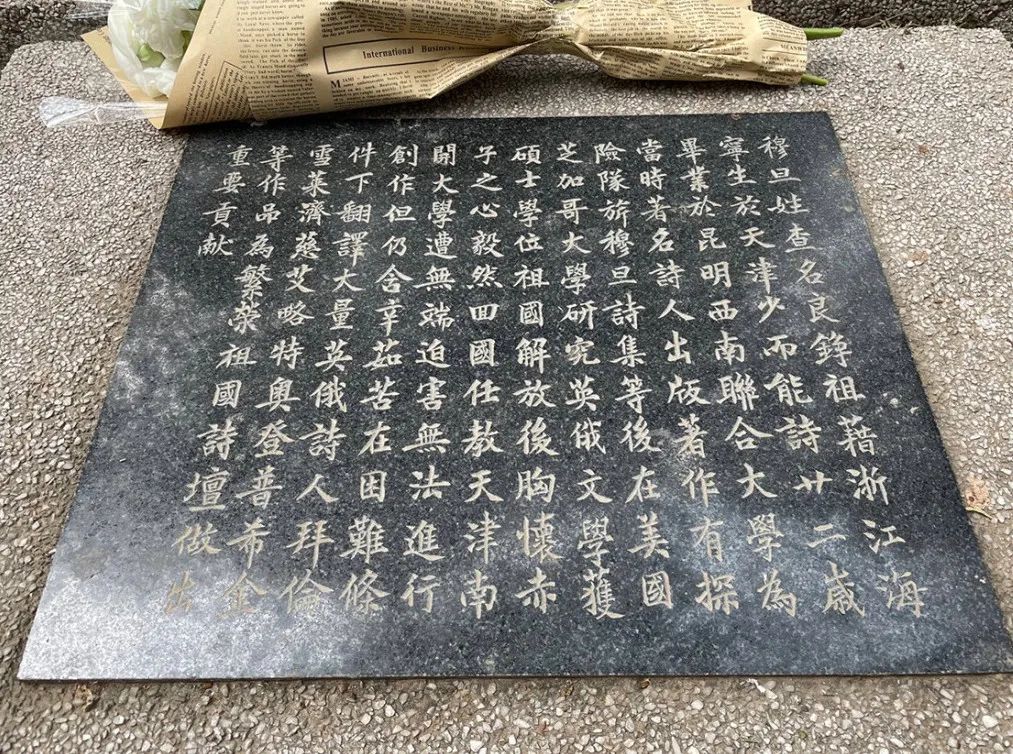 International Business
穆旦姓查名良錚祖藉浙江海
寧生於天津少而能詩廿二歲
畢業於昆明西南聯合大學為
當時著名詩人出版著作有探
險隊旂穆旦詩集等後在美國
芝加哥大學研究英俄文學獲
碩士學位祖國解放後胸懷赤
子之心毅然回國任教天津南
開大學遭無端迫害無法進行
創作但仍含辛茹苦在困難條
件下翻譯大量英俄詩人拜倫
雪萊濟慈艾略特奧登普希金
等作品為繁榮祖國詩壇做出
重要貢献